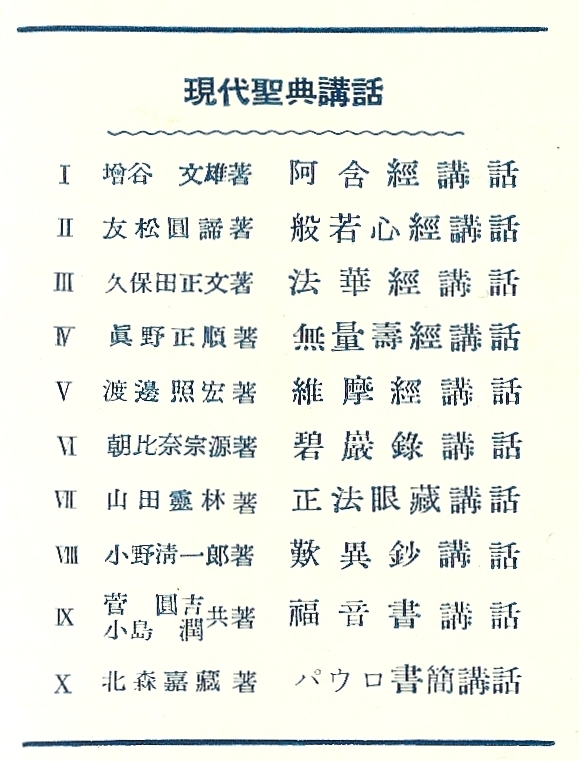 現代聖典講話
I 增谷 文雄著 阿含經講話
II 友松圓諦著 般若心經講話
III 久保田正文著 法華經講話
IV 眞野正順著 無量壽經講話
V 渡邊照宏著 維摩經講話
VI 朝比奈宗源著 碧巖錄講話
VII 山田靈林著 正法眼藏講話
VIII 小野淸一郎著 歎異鈔講話
IX 菅 圓吉 小島 潤 共著 福音書講話
X 北森嘉藏著 パウロ書簡講話